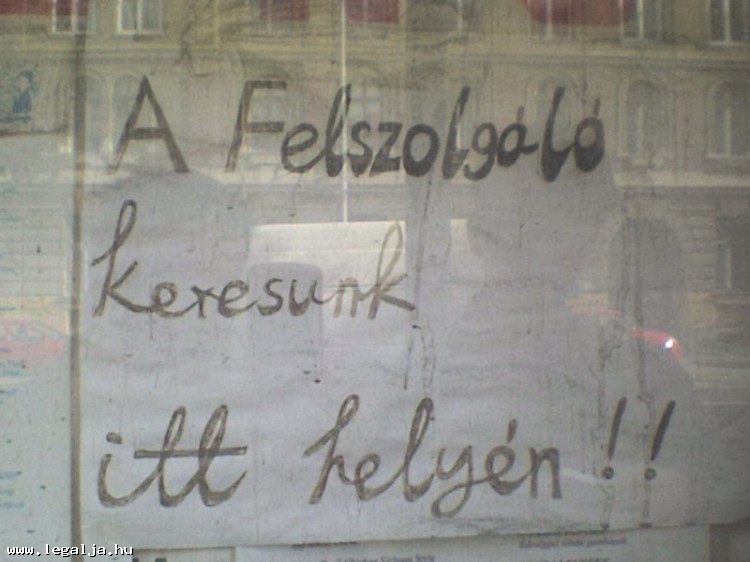 A Felszolgáló
keresunk
itt helyén !!
www.legalja.hu